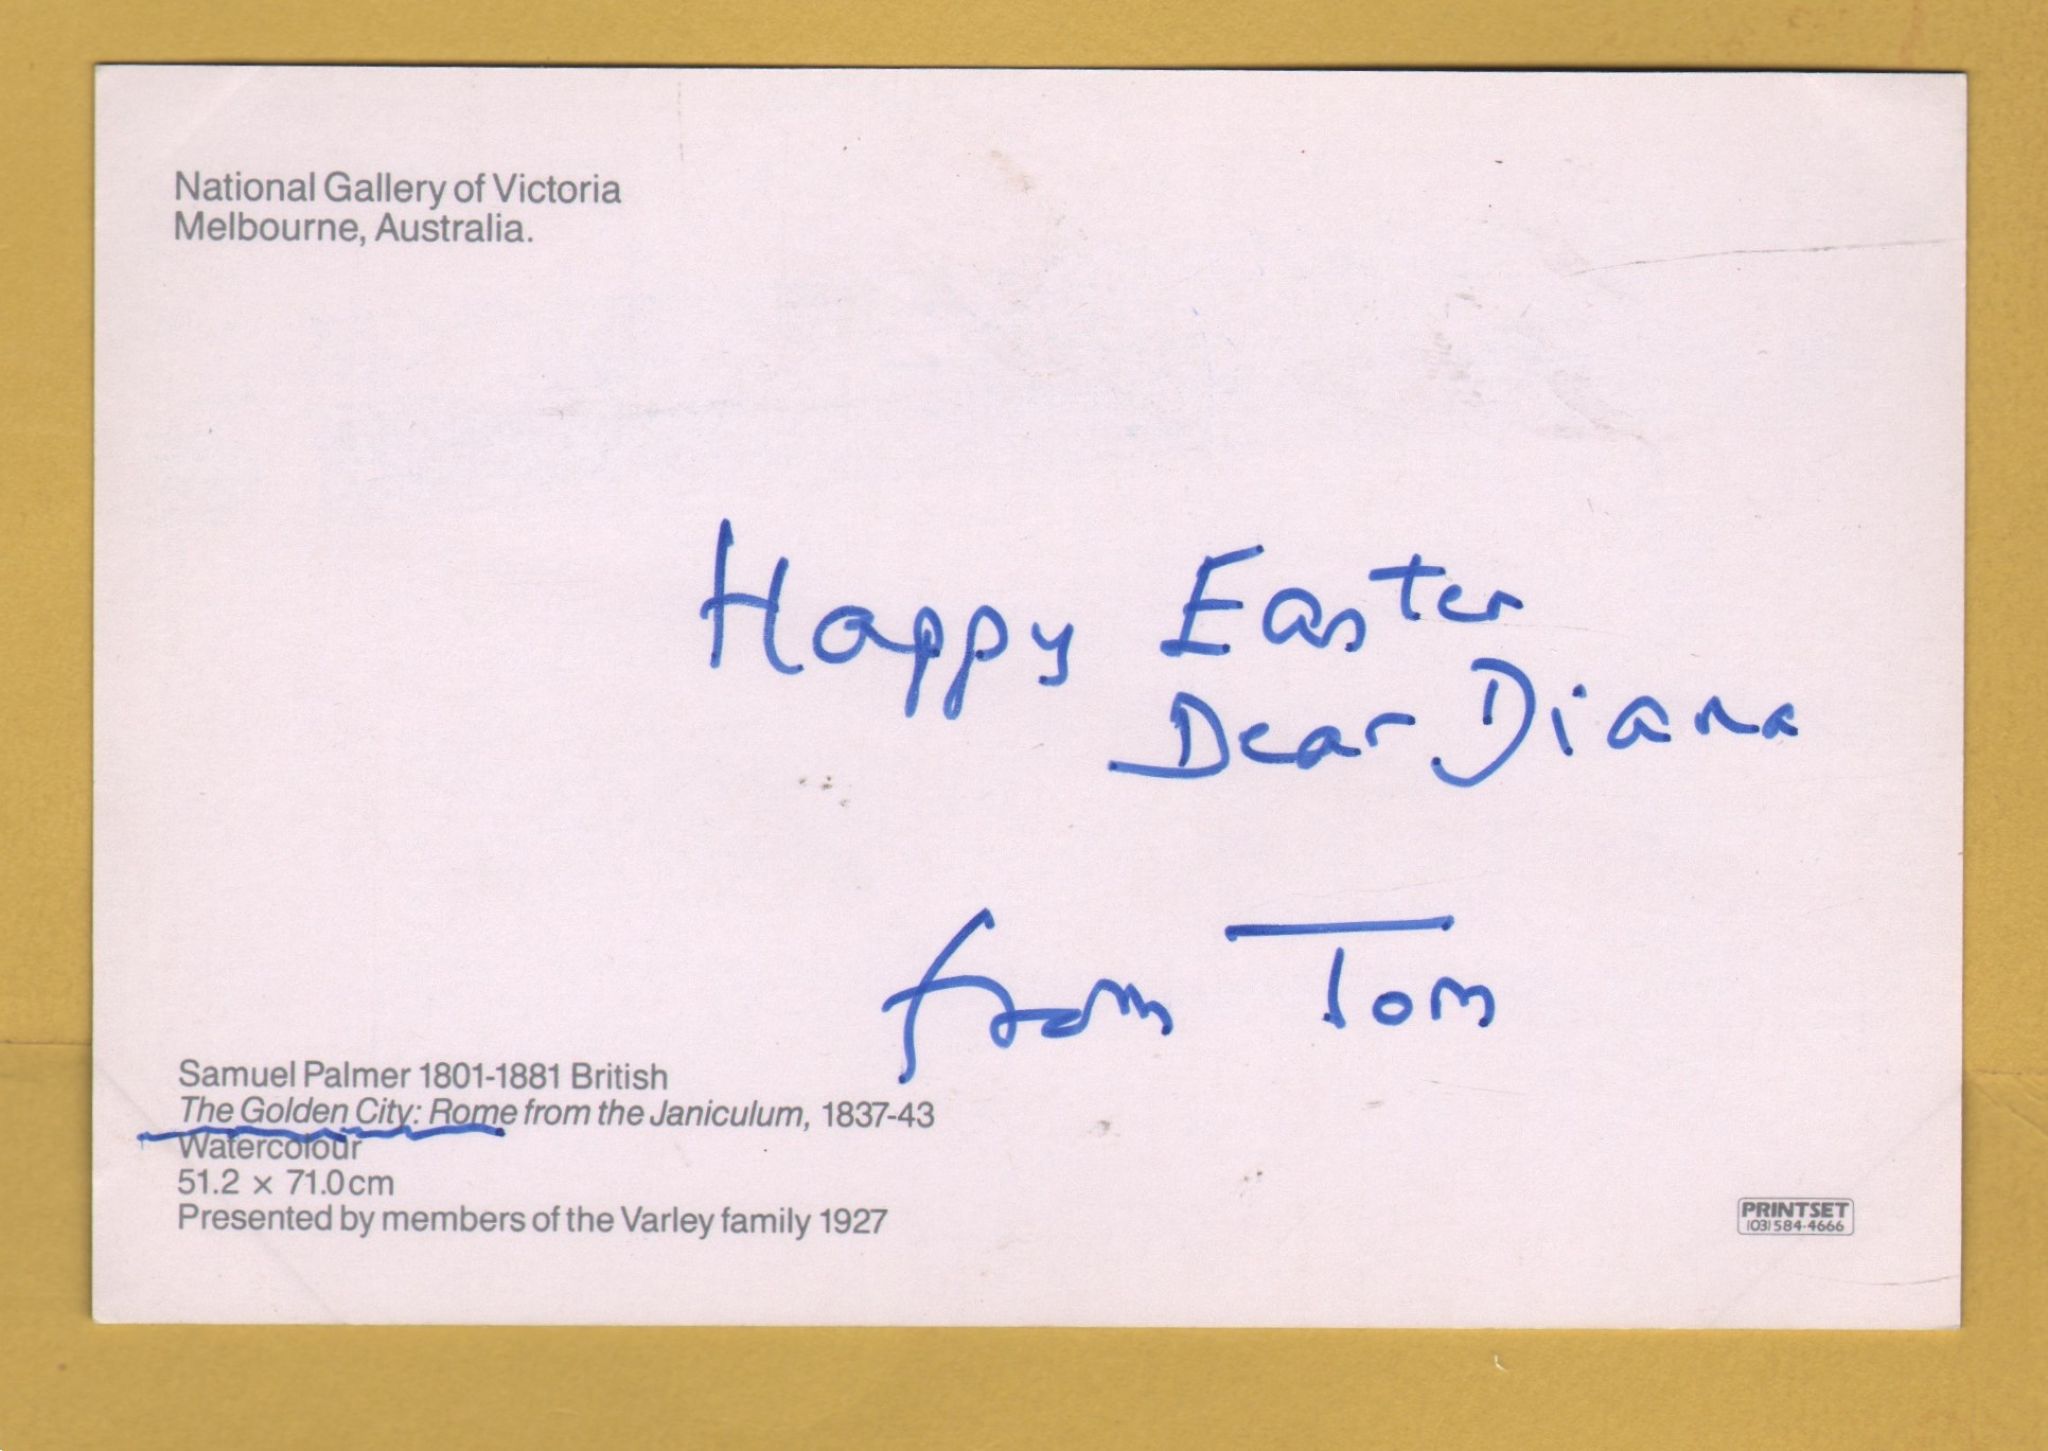 National Gallery of Victoria
Melbourne, Australia.
Happy Easter
Dear Diana
from Tom
Samuel Palmer 1801-1881 British
The Golden City: Rome from the Janiculum, 1837-43
Watercolour
51.2 × 71.0cm
Presented by members of the Varley family 1927
PRINTSET
(03) 584-4666